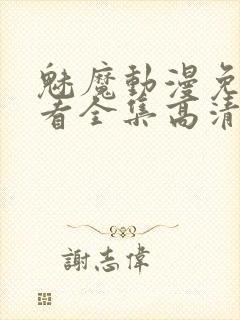 魅魔動漫免
看全集高清
謝志偉